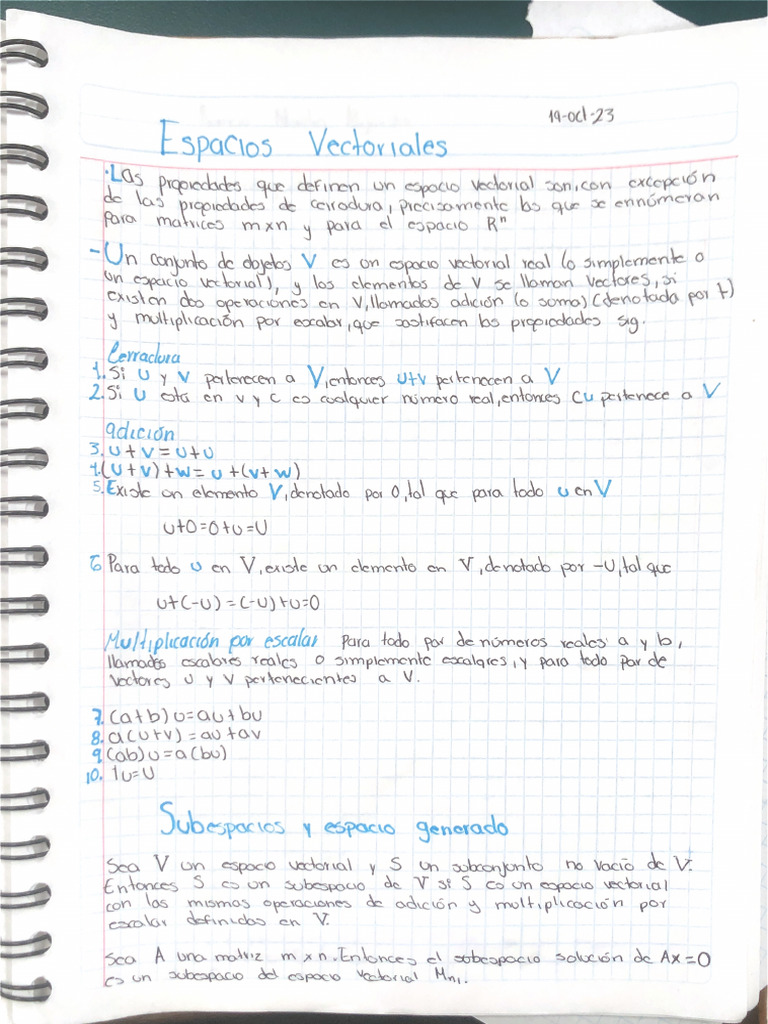 19-oct-23
Espacios Vectoriales
·Las propiedades que definen un espacio vectorial son, con excepción
de las propiedades de cerradura, precisamente las que se ennúmeran
para matrices m x n y para el espacio Rⁿ
-Un conjunto de objetos V es un espacio vectorial real (o simplemente o
un espacio vectorial), y los elementos de V se llaman vectores, si
existen dos operaciones en V, llamados adición (o suma) (denotada por +)
y multiplicación por escalar, que sastifacen las propiedades sig.
Cerradura
1. Si u y v pertenecen a V, entonces u+v pertenecen a V
2. Si u está en v y c es cualquier número real, entonces cu pertenece a V
adición
3. u+v=u+u
4. (u+v)+w=u+(v+w)
5. Existe un elemento V, denotado por 0, tal que para todo u en V
u+0=0+u=u
6 Para todo u en V, existe un elemento en V, denotado por -u, tal que
u+(-u)=(-u)+u=0
Multiplicación por escalar Para todo par de números reales a y b,
llamados escalares reales o simplemente escalares, y para todo par de
vectores u y v pertenecientes a V.
7. (a+b)u=au+bu
8. a(u+v)=au+av
9. (ab)u=a(bu)
10. 1u=u
Subespacios y espacio generado
Sea V un espacio vectorial y S un subconjunto no vacio de V.
Entonces S es un subespacio de V si S es un espacio vectorial
con las mismas operaciones de adición y multiplicación por
escalar definidas en V.
Sea A una matriz m x n. Entonces el subespacio solución de Ax=0
es un subespacio del espacio vectorial Mn1.